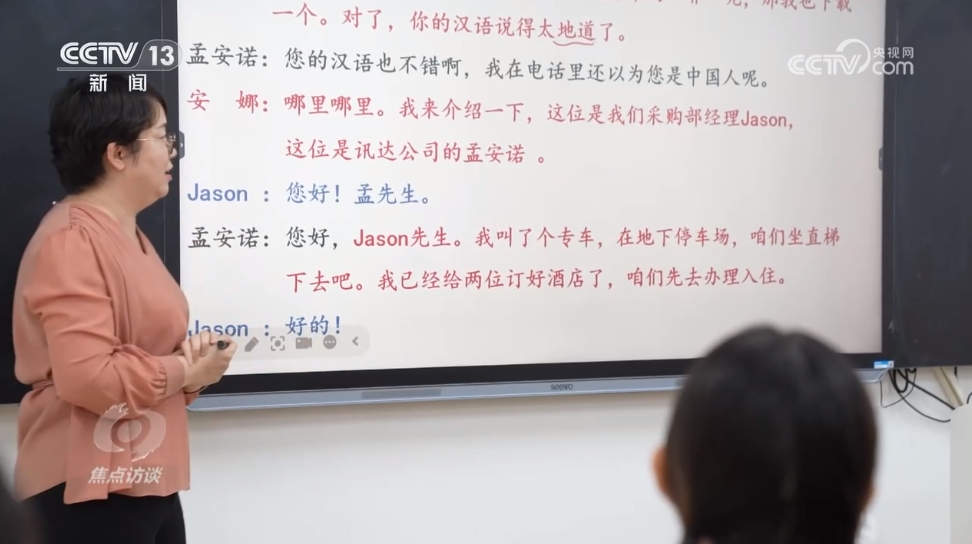 一个。对了，你的汉语说得太地道了。
孟安诺：您的汉语也不错啊，我在电话里还以为您是中国人呢。
安　娜：哪里哪里。我来介绍一下，这位是我们采购部经理Jason，
这位是讯达公司的孟安诺 。
Jason ：您好！孟先生。
孟安诺：您好，Jason先生。我叫了个专车，在地下停车场，咱们坐直梯
下去吧。我已经给两位订好酒店了，咱们先去办理入住。
Jason ：好的！
seewo
CCTV 13
新 闻
央视网
CCTV.com
焦点访谈